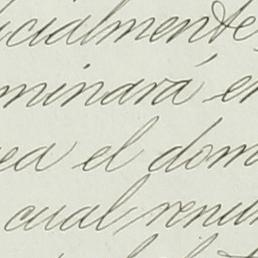 icialmente,
minará en
ea el dom
cual renun